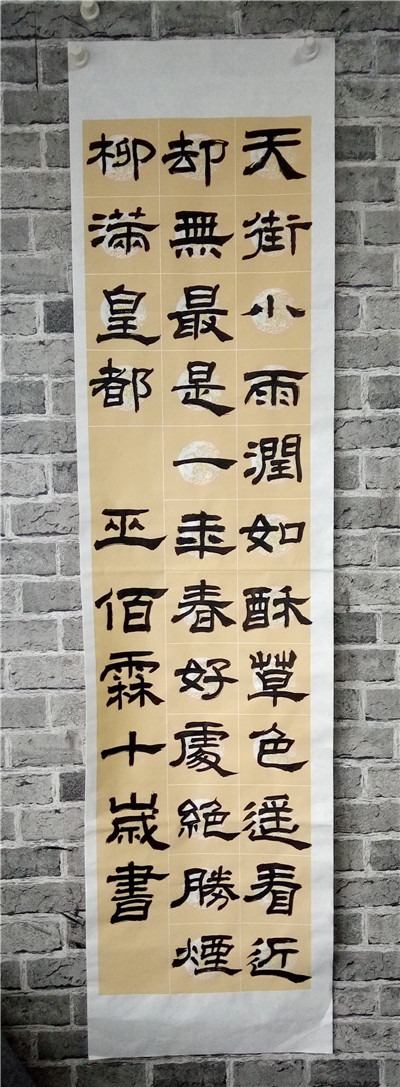 天街小雨潤如酥草色遥看近
却無最是一年春好處絶勝煙
柳滿皇都 巫佰霖十歲書